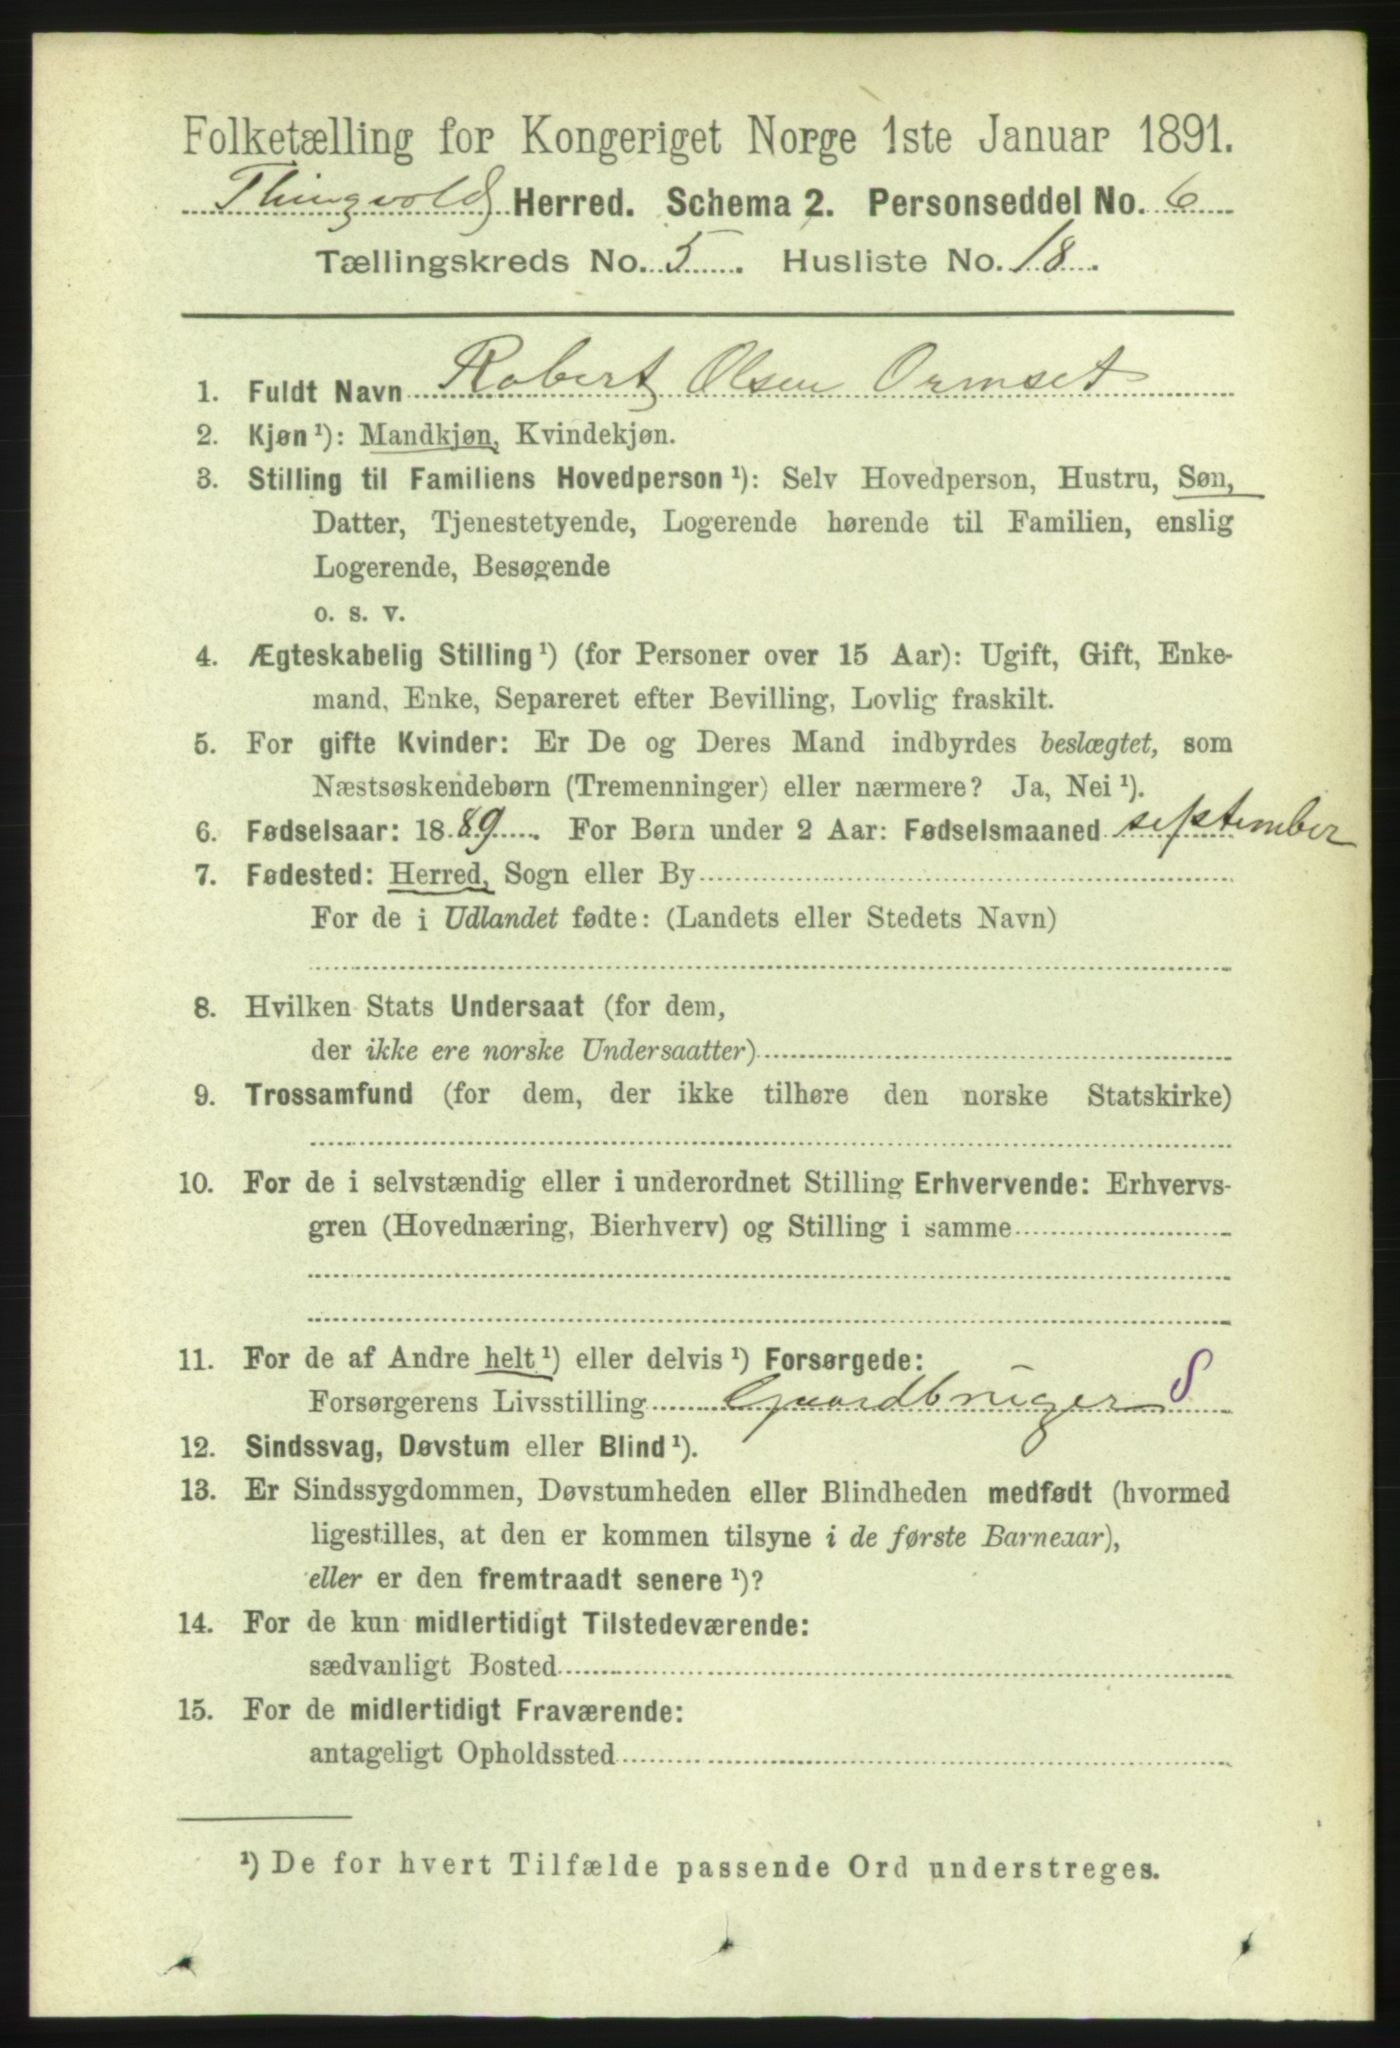 Folketælling for Kongeriget Norge 1ste Januar 1891.
Thingvold Herred. Schema 2. Personseddel No. 6
Tællingskreds No. 5. Husliste No. 18.
1. Fuldt Navn Robert Olsen Ormset
2. Kjøn ¹): Mandkjøn, Kvindekjøn.
3. Stilling til Familiens Hovedperson ¹): Selv Hovedperson, Hustru, Søn,
Datter, Tjenestetyende, Logerende hørende til Familien, enslig
Logerende, Besøgende
o. s. v.
4. Ægteskabelig Stilling ¹) (for Personer over 15 Aar): Ugift, Gift, Enke-
mand, Enke, Separeret efter Bevilling, Lovlig fraskilt.
5. For gifte Kvinder: Er De og Deres Mand indbyrdes beslægtet, som
Næstsøskendebørn (Tremenninger) eller nærmere? Ja, Nei ¹).
6. Fødselsaar: 1889. For Børn under 2 Aar: Fødselsmaaned september
7. Fødested: Herred, Sogn eller By
For de i Udlandet fødte: (Landets eller Stedets Navn)
8. Hvilken Stats Undersaat (for dem,
der ikke ere norske Undersaatter)
9. Trossamfund (for dem, der ikke tilhøre den norske Statskirke)
10. For de i selvstændig eller i underordnet Stilling Erhvervende: Erhvervs-
gren (Hovednæring, Bierhverv) og Stilling i samme
11. For de af Andre helt ¹) eller delvis ¹) Forsørgede:
Forsørgerens Livsstilling Gaardbruger S
12. Sindssvag, Døvstum eller Blind ¹).
13. Er Sindssygdommen, Døvstumheden eller Blindheden medfødt (hvormed
ligestilles, at den er kommen tilsyne i de første Barneaar),
eller er den fremtraadt senere ¹)?
14. For de kun midlertidigt Tilstedeværende:
sædvanligt Bosted
15. For de midlertidigt Fraværende:
antageligt Opholdssted
¹) De for hvert Tilfælde passende Ord understreges.